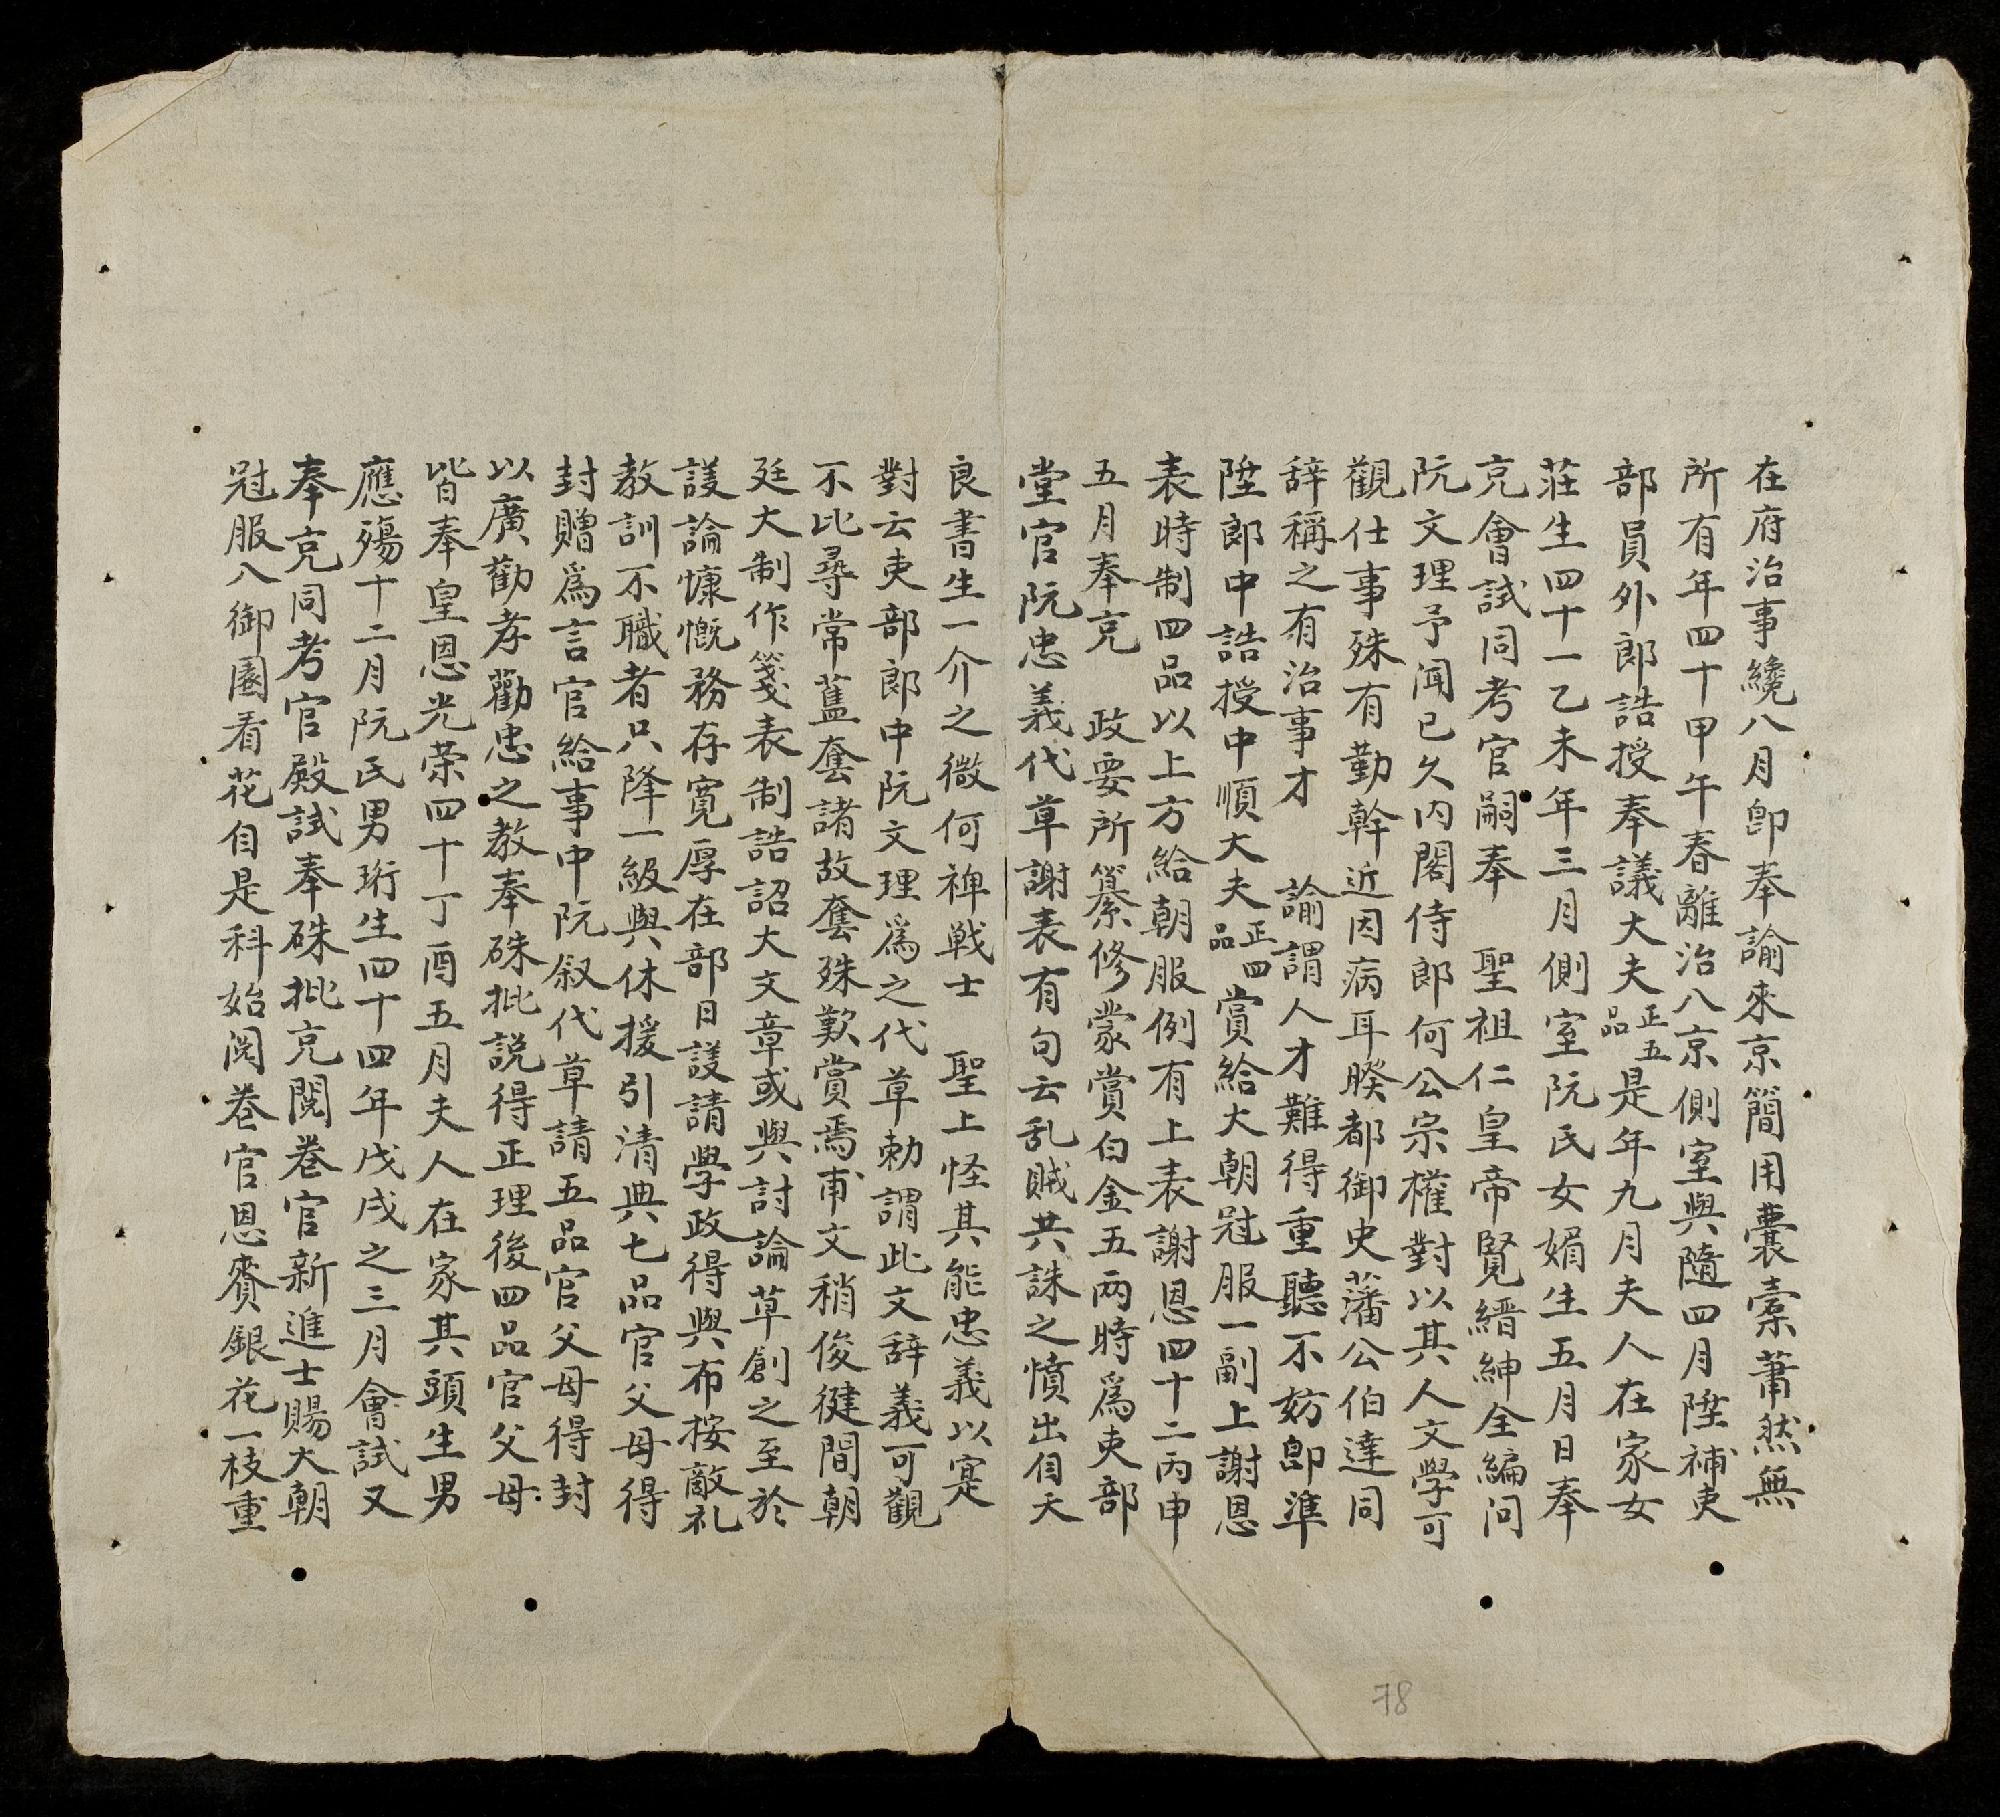 在府治事纔八月卽奉諭來京簡用囊橐蕭然無
所有年四十甲午春離治八京側室與隨四月陞補吏
部員外郎誥授奉議大夫正五品是年九月夫人在家女
莊生四十一乙未年三月側室阮氏女媚生五月日奉
充會試同考官嗣奉 聖祖仁皇帝覽縉紳全編问
阮文理予闻已久内閣侍郎何公宗權對以其人文學可
觀仕事殊有勤幹近因病耳睽都御史藩公伯達同
辞稱之有治事才 諭謂人才難得重聽不妨卽準
陞郎中誥授中順大夫正四品賞給大朝冠服一副上謝恩
表時制四品以上方給朝服例有上表謝恩四十二丙申
五月奉充 政要所纂修蒙賞白金五两時爲吏部
堂官阮忠義代草謝表有句云乱賊共誅之憤出自天
良書生一介之微何裨戦士 聖上怪其能忠義以寔
對云吏部郎中阮文理爲之代草勅謂此文辞義可觀
不比尋常藍奮諸故奮殊歎賞焉甫文稍俊健間朝
廷大制作箋表制誥詔大文章或與討論草創之至於
議論慷慨務存寬厚在部日議請學政得與布按敵礼
教訓不職者只降一級與休援引清典七品官父母得
封贈爲言官給事中阮叙代草請五品官父母得封
以廣勸孝勸忠之教奉硃批説得正理後四品官父母
皆奉皇恩光荣四十丁酉五月夫人在家其頭生男
應殤十二月阮氏男珩生四十四年戊戌之三月會試又
奉充同考官殿試奉硃批充閱卷官新進士賜大朝
冠服八御園看花自是科始阅卷官恩賚銀花一枝重
78